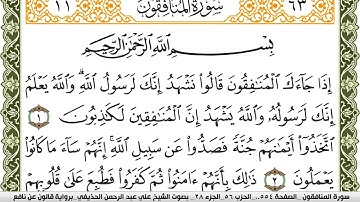 ٦٣ سُورَةُ المُنَافِقُونَ ١١
بِسْمِ اللَّهِ الرَّحْمَٰنِ الرَّحِيمِ
إِذَا جَآءَكَ ٱلْمُنَٰفِقُونَ قَالُوا۟ نَشْهَدُ إِنَّكَ لَرَسُولُ ٱللَّهِ ۗ وَٱللَّهُ يَعْلَمُ
إِنَّكَ لَرَسُولُهُۥ وَٱللَّهُ يَشْهَدُ إِنَّ ٱلْمُنَٰفِقِينَ لَكَٰذِبُونَ ١
ٱتَّخَذُوٓا۟ أَيْمَٰنَهُمْ جُنَّةً فَصَدُّوا۟ عَن سَبِيلِ ٱللَّهِ ۚ إِنَّهُمْ سَآءَ مَا كَانُوا۟
يَعْمَلُونَ ٢ ذَٰلِكَ بِأَنَّهُمْ ءَامَنُوا۟ ثُمَّ كَفَرُوا۟ فَطُبِعَ عَلَىٰ قُلُوبِهِمْ
سورة المنافقون الصفحة ٥٥٤... الحزب ٥٦ الجزء ٢٨... بصوت الشيخ علي عبد الرحمن الحذيفي برواية قالون عن نافع